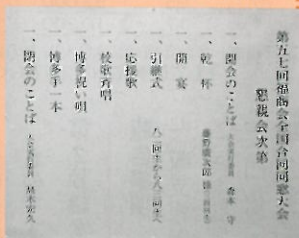 第五七回福商会全国合同同窓大会
懇親会次第
一、開会のことば 大会実行委員 森本 守
一、乾 杯
一、開 宴
一、引継式
一、応援歌
一、校歌斉唱
一、博多祝い唄
一、博多手一本
一、閉会のことば 大会実行委員